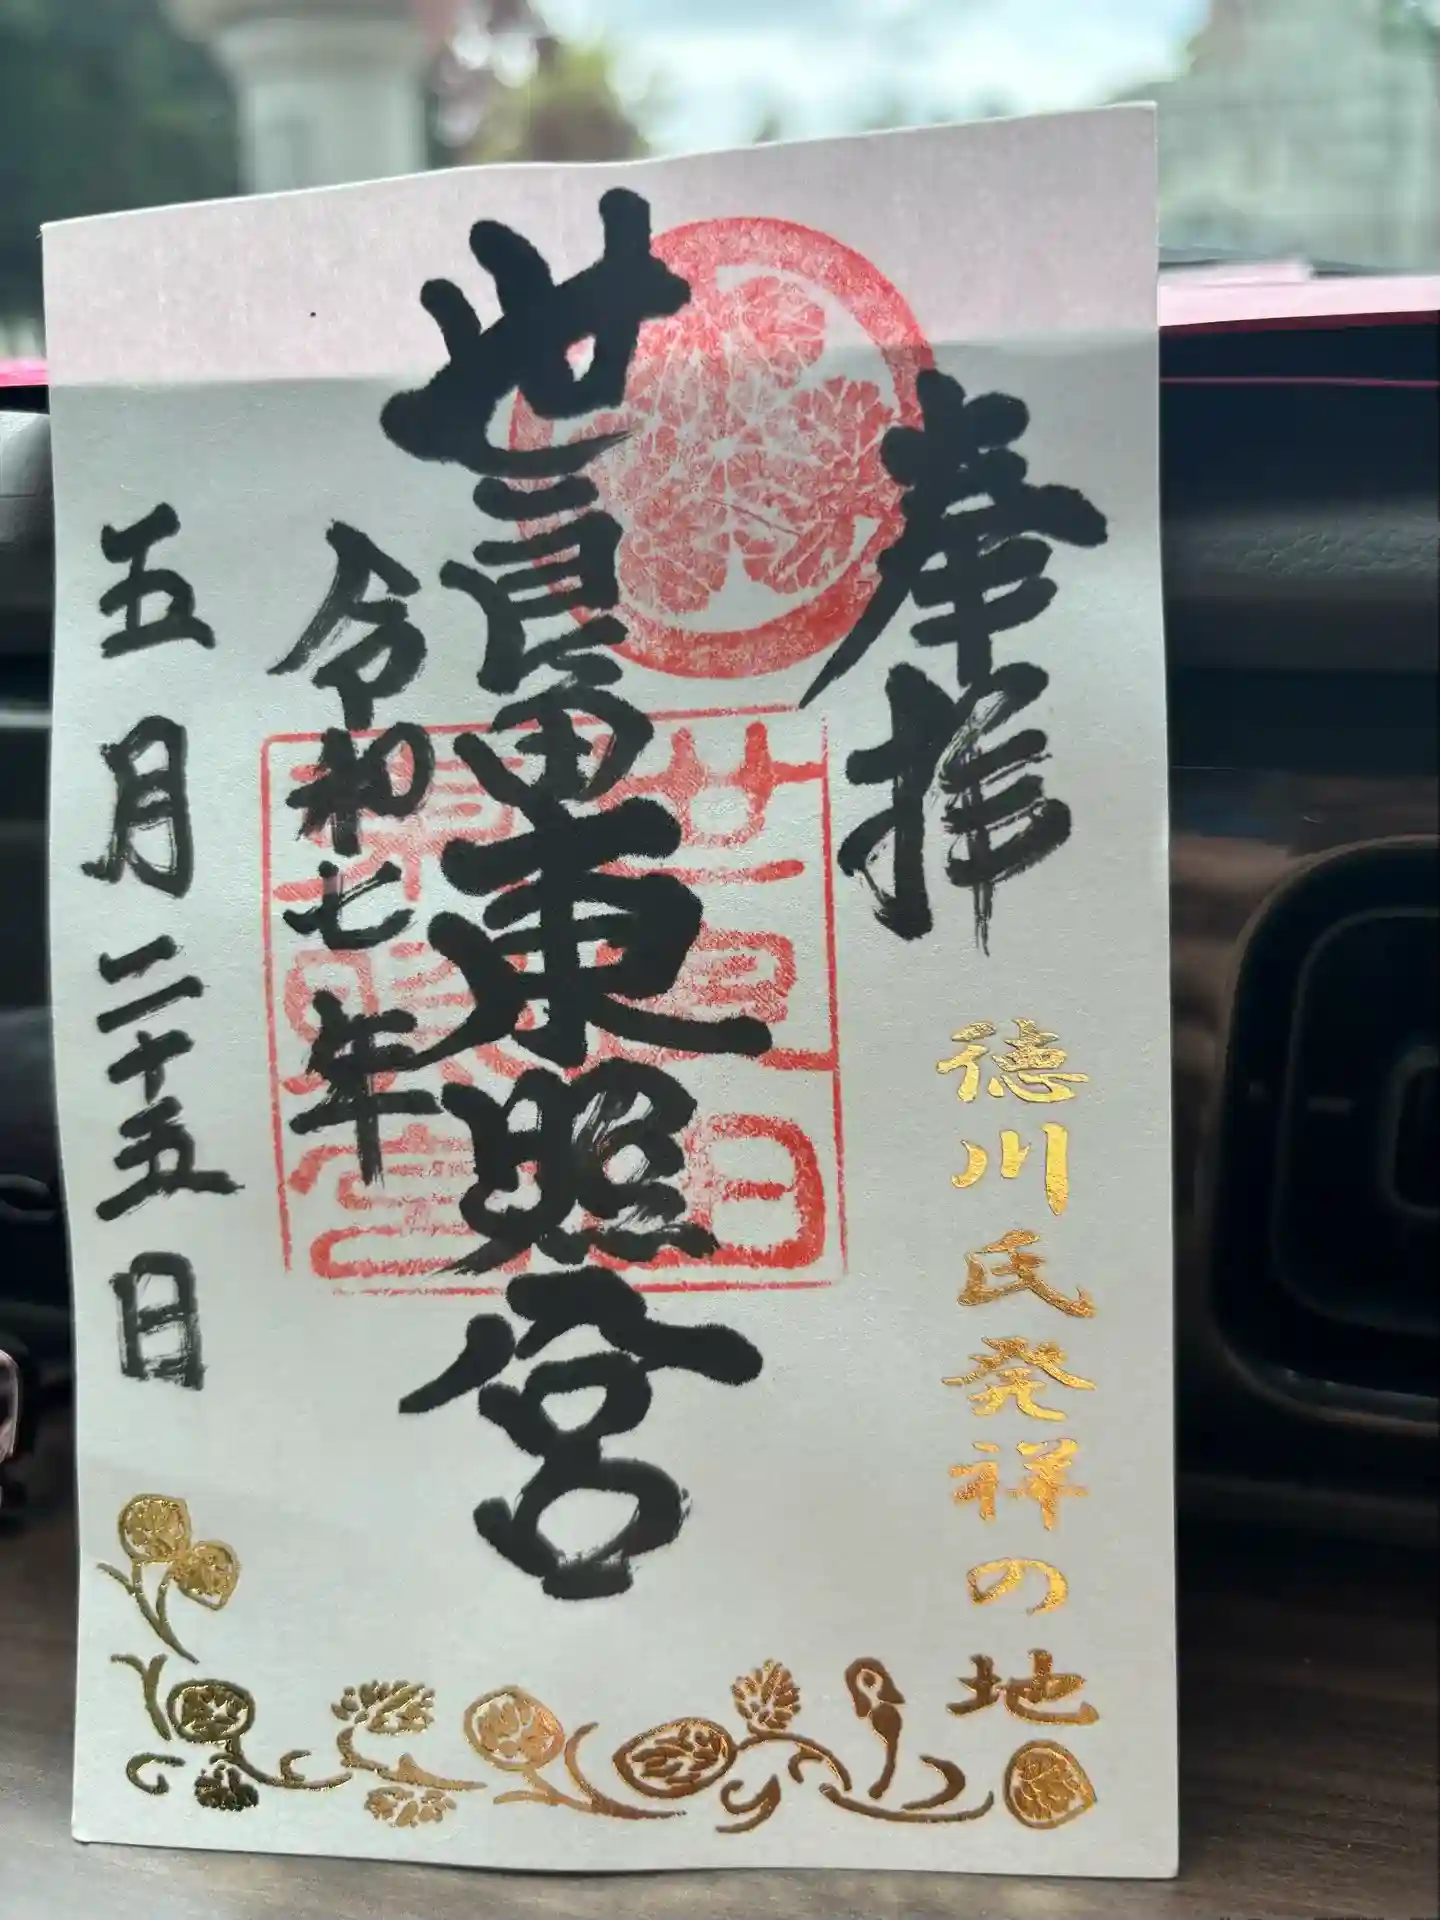 奉拝
徳川氏発祥の地
世良田東照宮
令和七年
五月二十五日